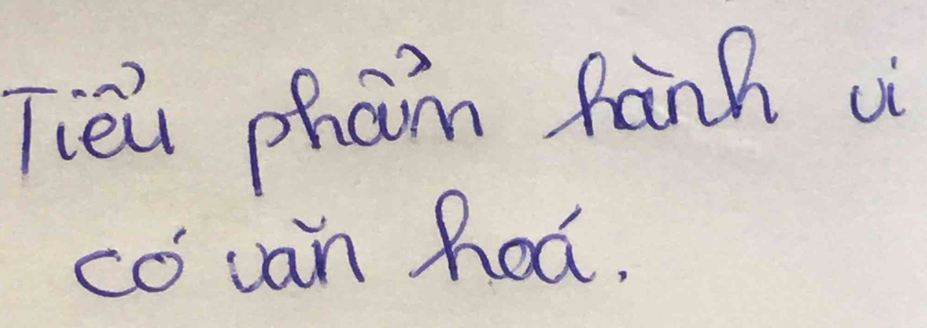 Tiểu phẩm hành vi
có văn hoá.